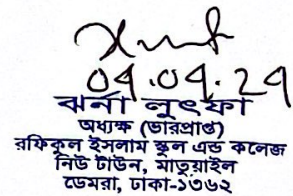 04.04.24
ঝর্না লুৎফা
অধ্যক্ষ (ভারপ্রাপ্ত)
রফিকুল ইসলাম স্কুল এন্ড কলেজ
নিউ টাউন, মাতুয়াইল
ডেমরা, ঢাকা-১৩৬২